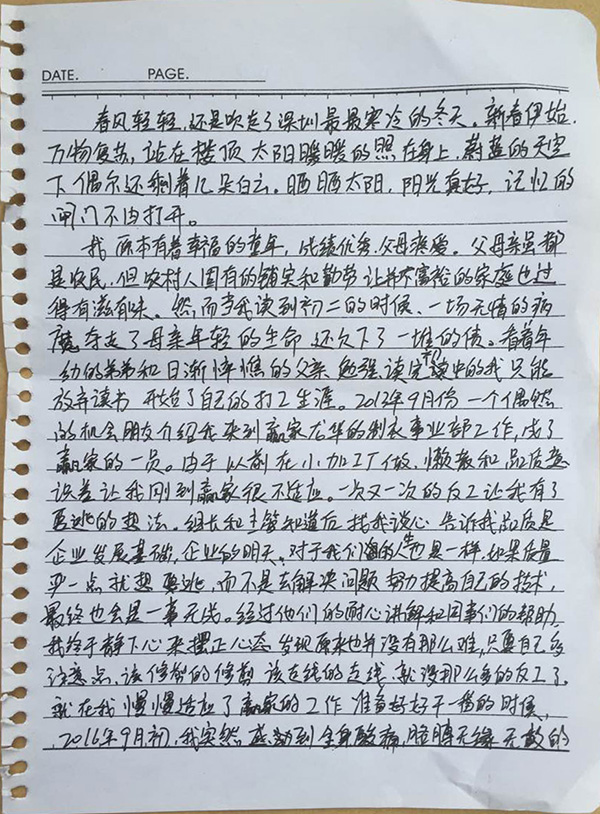 DATE. PAGE.
春风轻轻,还是吹走了深圳最最寒冷的冬天。新春伊始,
万物复苏,站在楼顶 太阳暖暖的照在身上,蔚蓝的天空
下偶尔还剩着几朵白云。晒晒太阳,阳光真好,记忆的
闸门不由打开。
我原本有着幸福的童年,成绩优秀,父母疼爱。父母亲虽都
是农民,但农村人固有的铺实和勤劳让并不富裕的家庭也过
得有滋有味。然而当我读到初二的时候,一场无情的病
魔夺走了母亲年轻的生命,还欠下了一堆的债。看着年
幼的弟弟和日渐憔悴的父亲,勉强读完初中的我只能
放弃读书 开始了自己的打工生涯。2012年9月份一个偶然
的机会朋友介绍我来到赢家龙华的制衣事业部工作,成了
赢家的一员。由于以前在小加工厂做,懒散和品质意
识差让我刚到赢家很不适应。一次又一次的返工让我有了
要逃的想法。组长和主管知道后,找我谈心 告诉我品质是
企业发展基础,企业的明天。对于我们的人生也是一样,如果质量
严一点就想要逃,而不是去解决问题 努力提高自己的技术,
最终也会是一事无成。经过他们的耐心讲解和同事们的帮助,
我终于静下心来摆正心态 发现原来也并没有那么难,只要自己多
注意点,该修剪的修剪 该走线的走线,就没那么多的返工了。
就在我慢慢适应了赢家的工作 准备好好干一番的时候,
2016年9月初,我突然感动到全身酸痛,胳膊无缘无故的